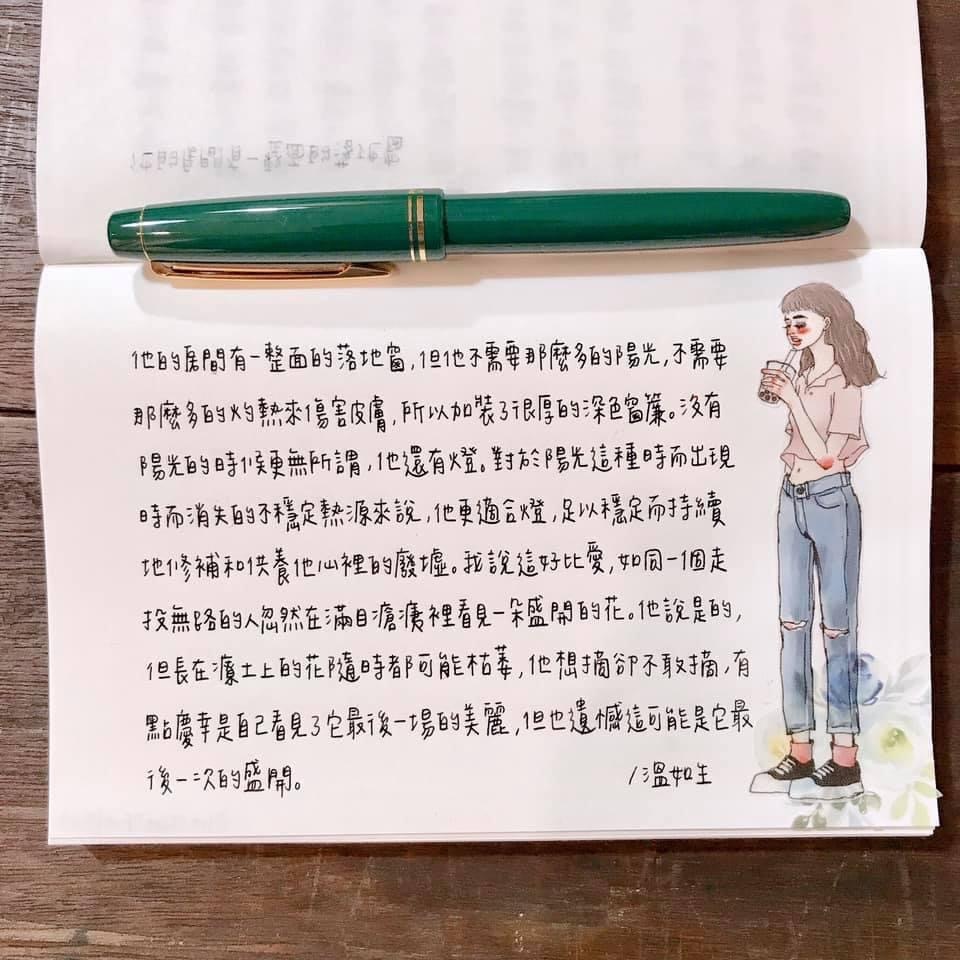 他的房間有一整面的落地窗,但他不需要那麼多的陽光,不需要
那麼多的灼熱來傷害皮膚,所以加裝了很厚的深色窗簾。沒有
陽光的時候更無所謂,他還有燈。對於陽光這種時而出現
時而消失的不穩定熱源來說,他更適合燈,足以穩定而持續
地修補和供養他心裡的廢墟。我說這好比愛,如同一個走
投無路的人忽然在滿目瘡痍裡看見一朵盛開的花。他說是的,
但長在瘠土上的花隨時都可能枯萎,他想摘卻不敢摘,有
點慶幸是自己看見了它最後一場的美麗,但也遺憾這可能是它最
後一次的盛開。
/溫如生